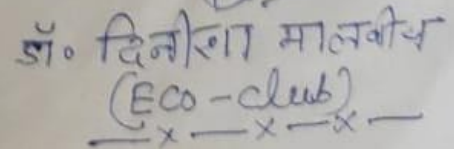 डॉ० दिनीशा मालवीय
(Eco-club)
—x—x—x—